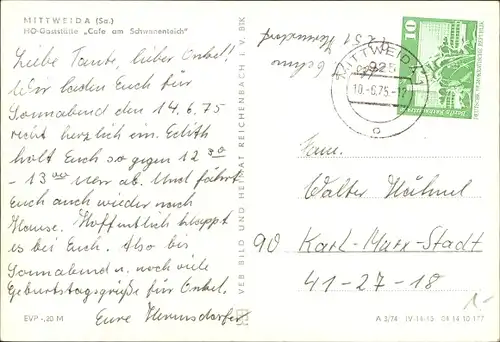 MITTWEIDA (Sa.)
HO-Gaststätte „Cafe am Schwanenteich"
Liebe Tante, lieber Onkel!
Wir laden Euch für
Sonnabend den 14.6.75
recht herzlich ein. Edith
holt Euch so gegen 12 30
- 13 00 Uhr ab. Und fährt
Euch auch wieder nach
Hause. Hoffentlich klappt
es bei Euch. Also bis
Sonnabend u. noch viele
Geburtstagsgrüße für Onkel.
Eure Hermsdorfer
EVP -,20 M
VEB BILD UND HEIMAT REICHENBACH I. V. BIK
MITTWEIDA
925
10.-6.75-12
10
Fam.
Walter Hähnel
90 Karl-Marx-Stadt
41-27-18
1,-
A 3/74 IV-14-15 04 14 10 177